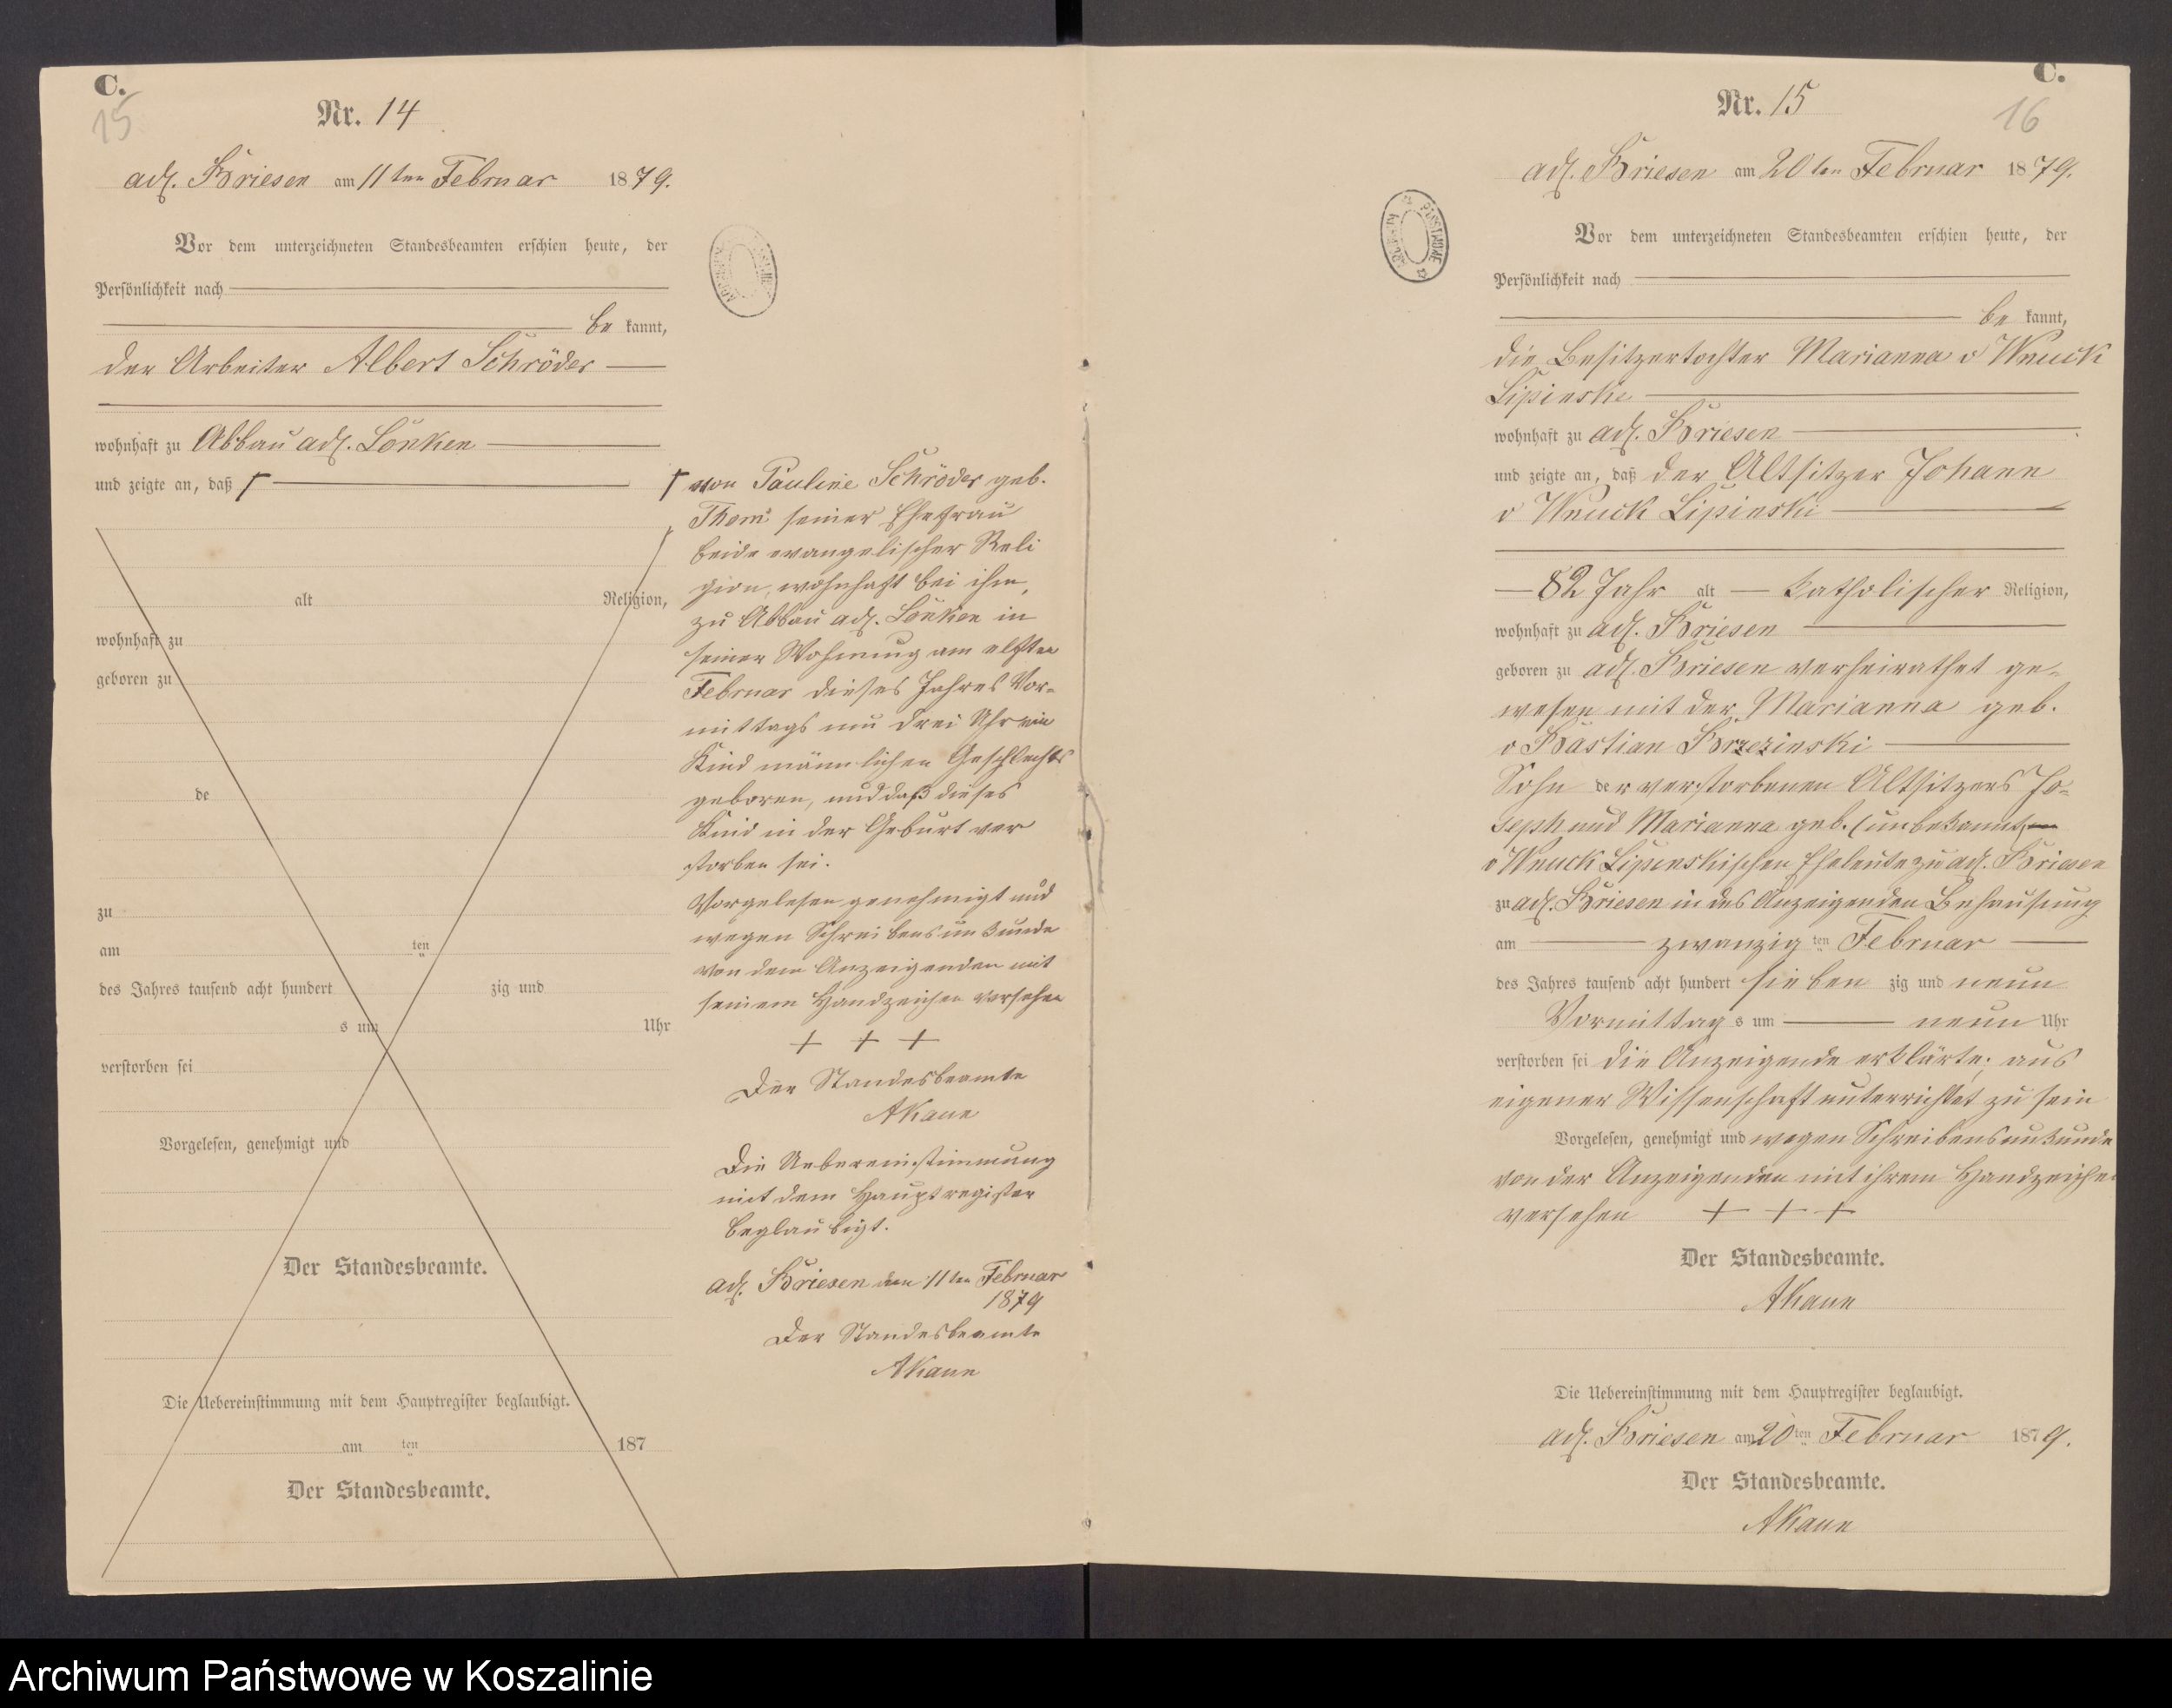 C.
15
Nr. 14
adl. Briesen am 11ten Februar 1879.
Vor dem unterzeichneten Standesbeamten erschien heute, der
Persönlichkeit nach
be kannt,
der Arbeiter Albert Schröder
wohnhaft zu Abbau adl. Lonken
und zeigte an, daß
alt Religion,
wohnhaft zu
geboren zu
de
zu
am ten
des Jahres tausend acht hundert zig und
s um Uhr
verstorben sei
Vorgelesen, genehmigt und
Der Standesbeamte.
Die Uebereinstimmung mit dem Hauptregister beglaubigt.
am ten 187
Der Standesbeamte.
von Pauline Schröder geb.
Thom seiner Ehefrau
beide evangelischer Reli
gion, wohnhaft bei ihm,
zu Abbau adl. Lonken in
seiner Wohnung am elften
Februar dieses Jahres Vor-
mittags um drei Uhr ein
Kind männlichen Geschlechts
geboren, und daß dieses
Kind in der Geburt ver
storben sei.
Vorgelesen genehmigt und
wegen Schreibensunkunde
von dem Anzeigenden mit
seinem Handzeichen versehen
+ + +
Der Standesbeamte
AKaun
Die Uebereinstimmung
mit dem Hauptregister
beglaubigt.
adl. Briesen den 11ten Februar
1879
Der Standesbeamte
AKaun
C.
16
Nr. 15
adl. Briesen am 20ten Februar 1879.
Vor dem unterzeichneten Standesbeamten erschien heute, der
Persönlichkeit nach
be kannt,
die Besitzertochter Marianna v Wnuck
Lipinski
wohnhaft zu adl. Briesen
und zeigte an, daß der Altsitzer Johann
v Wnuck Lipinski
82 Jahr alt katholischer Religion,
wohnhaft zu adl. Briesen
geboren zu adl. Briesen verheirathet ge-
wesen mit der Marianna geb.
v Bastian Brzezinski
Sohn der verstorbenen Altsitzers Jo-
seph und Marianna geb. (unbekannt)
v Wnuck Lipinskischen Eheleute zu adl. Briesen
zu adl. Briesen in des Anzeigenden Behausung
am zwanzig ten Februar
des Jahres tausend acht hundert sieben zig und neun
Vormittag s um neun Uhr
verstorben sei die Anzeigende erklärte, aus
eigener Wissenschaft unterrichtet zu sein
Vorgelesen, genehmigt und wegen Schreibensunkunde
von der Anzeigenden mit ihrem Handzeichen
versehen + + +
Der Standesbeamte.
AKaun
Die Uebereinstimmung mit dem Hauptregister beglaubigt.
adl. Briesen am 20ten Februar 1879.
Der Standesbeamte.
AKaun
Archiwum Państwowe w Koszalinie